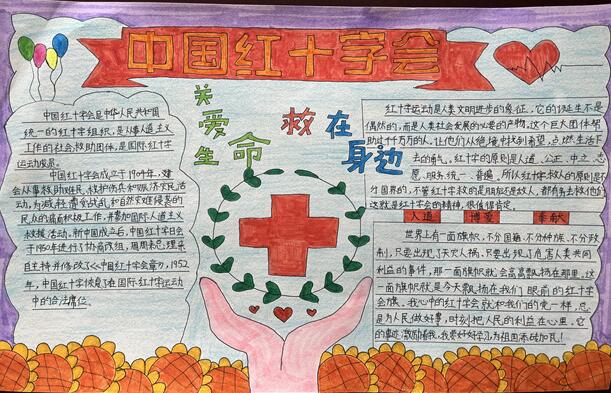 中国红十字会
关爱生命
救在身边
中国红十字会是中华人民共和国
统一的红十字组织，是从事人道主义
工作的社会救助团体，是国际红十字
运动成员。
中国红十字会成立于1904年，建
会从事救助难民、救护伤兵和赈济灾民活
动，为减轻遭受战乱和自然灾难侵害的
民众的痛苦积极工作，并参加国际人道主义
救援活动。新中国成立后，中国红十字会
于1950年进行了协商改组，周恩来总理亲
自主持并修改了《中国红十字会章》，1952
年，中国红十字会恢复了在国际红十字运动
中的合法席位
红十字运动是人类文明进步的象征，它的诞生不是
偶然的，而是人类社会发展的必要的产物。这个巨大团体帮
助过千千万万的人，让他们从绝境中找到希望，点燃生活下
去的勇气。红十字的原则是人道、公正、中立、志
愿、服务、统一、普遍。所以红十字救人的原则是不
分国界的，不管红十字救的是朋友还是敌人，都有务去救他们
这就是红十字会的精神，很值得肯定。
人道 博爱 奉献
世界上有一面旗帜，不分国籍、不分种族、不分政
制，只要出现了天灾人祸，只要出现了危害人类共同
利益的事件，那一面旗帜就会高高飘扬在那里，这
一面旗帜就是今天飘扬在我们眼前的红十字
会旗。我心中的红十字会就和我们的党一样，总
是为人民做好事，时刻把人民的利益在心里。它
的事迹激励着我，我要好好学习为祖国添砖加瓦！